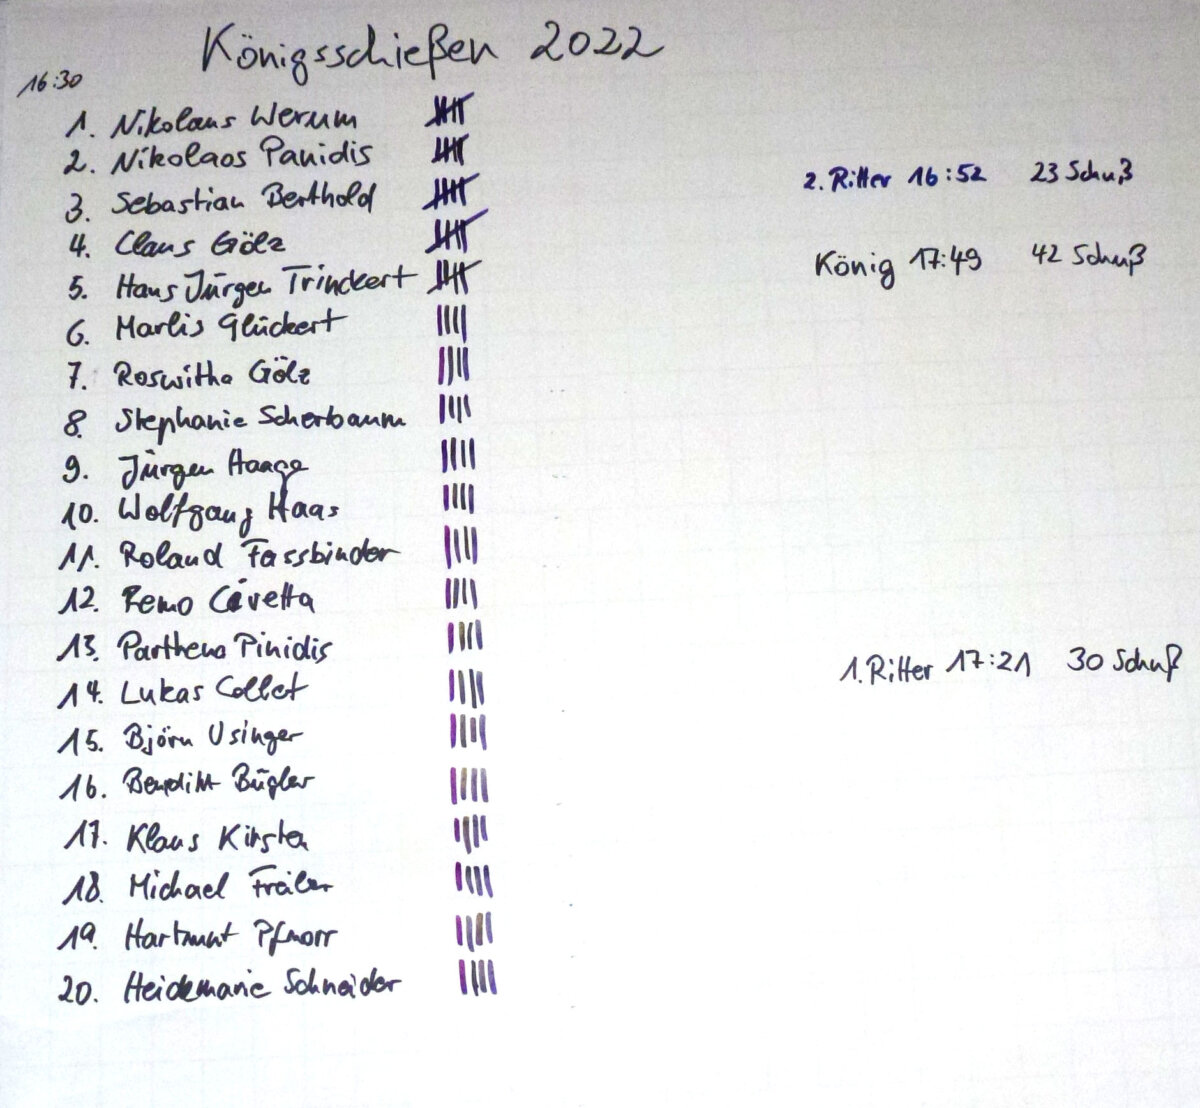 Königsschießen 2022
16:30
1. Nikolaus Werum
2. Nikolaos Panidis 2. Ritter 16:52 23 Schuß
3. Sebastian Berthold
4. Claus Gölz König 17:49 42 Schuß
5. Hans Jürgen Trinckert
6. Marlis Glückert
7. Roswitha Gölz
8. Stephanie Scherbaum
9. Jürgen Haage
10. Wolfgang Haas
11. Roland Fassbinder
12. Remo Cavetta
13. Parthena Pinidis 1. Ritter 17:21 30 Schuß
14. Lukas Collet
15. Björn Usinger
16. Benedikt Bügler
17. Klaus Kirsten
18. Michael
19. Hartmut Pfnorr
20. Heidemarie Schneider